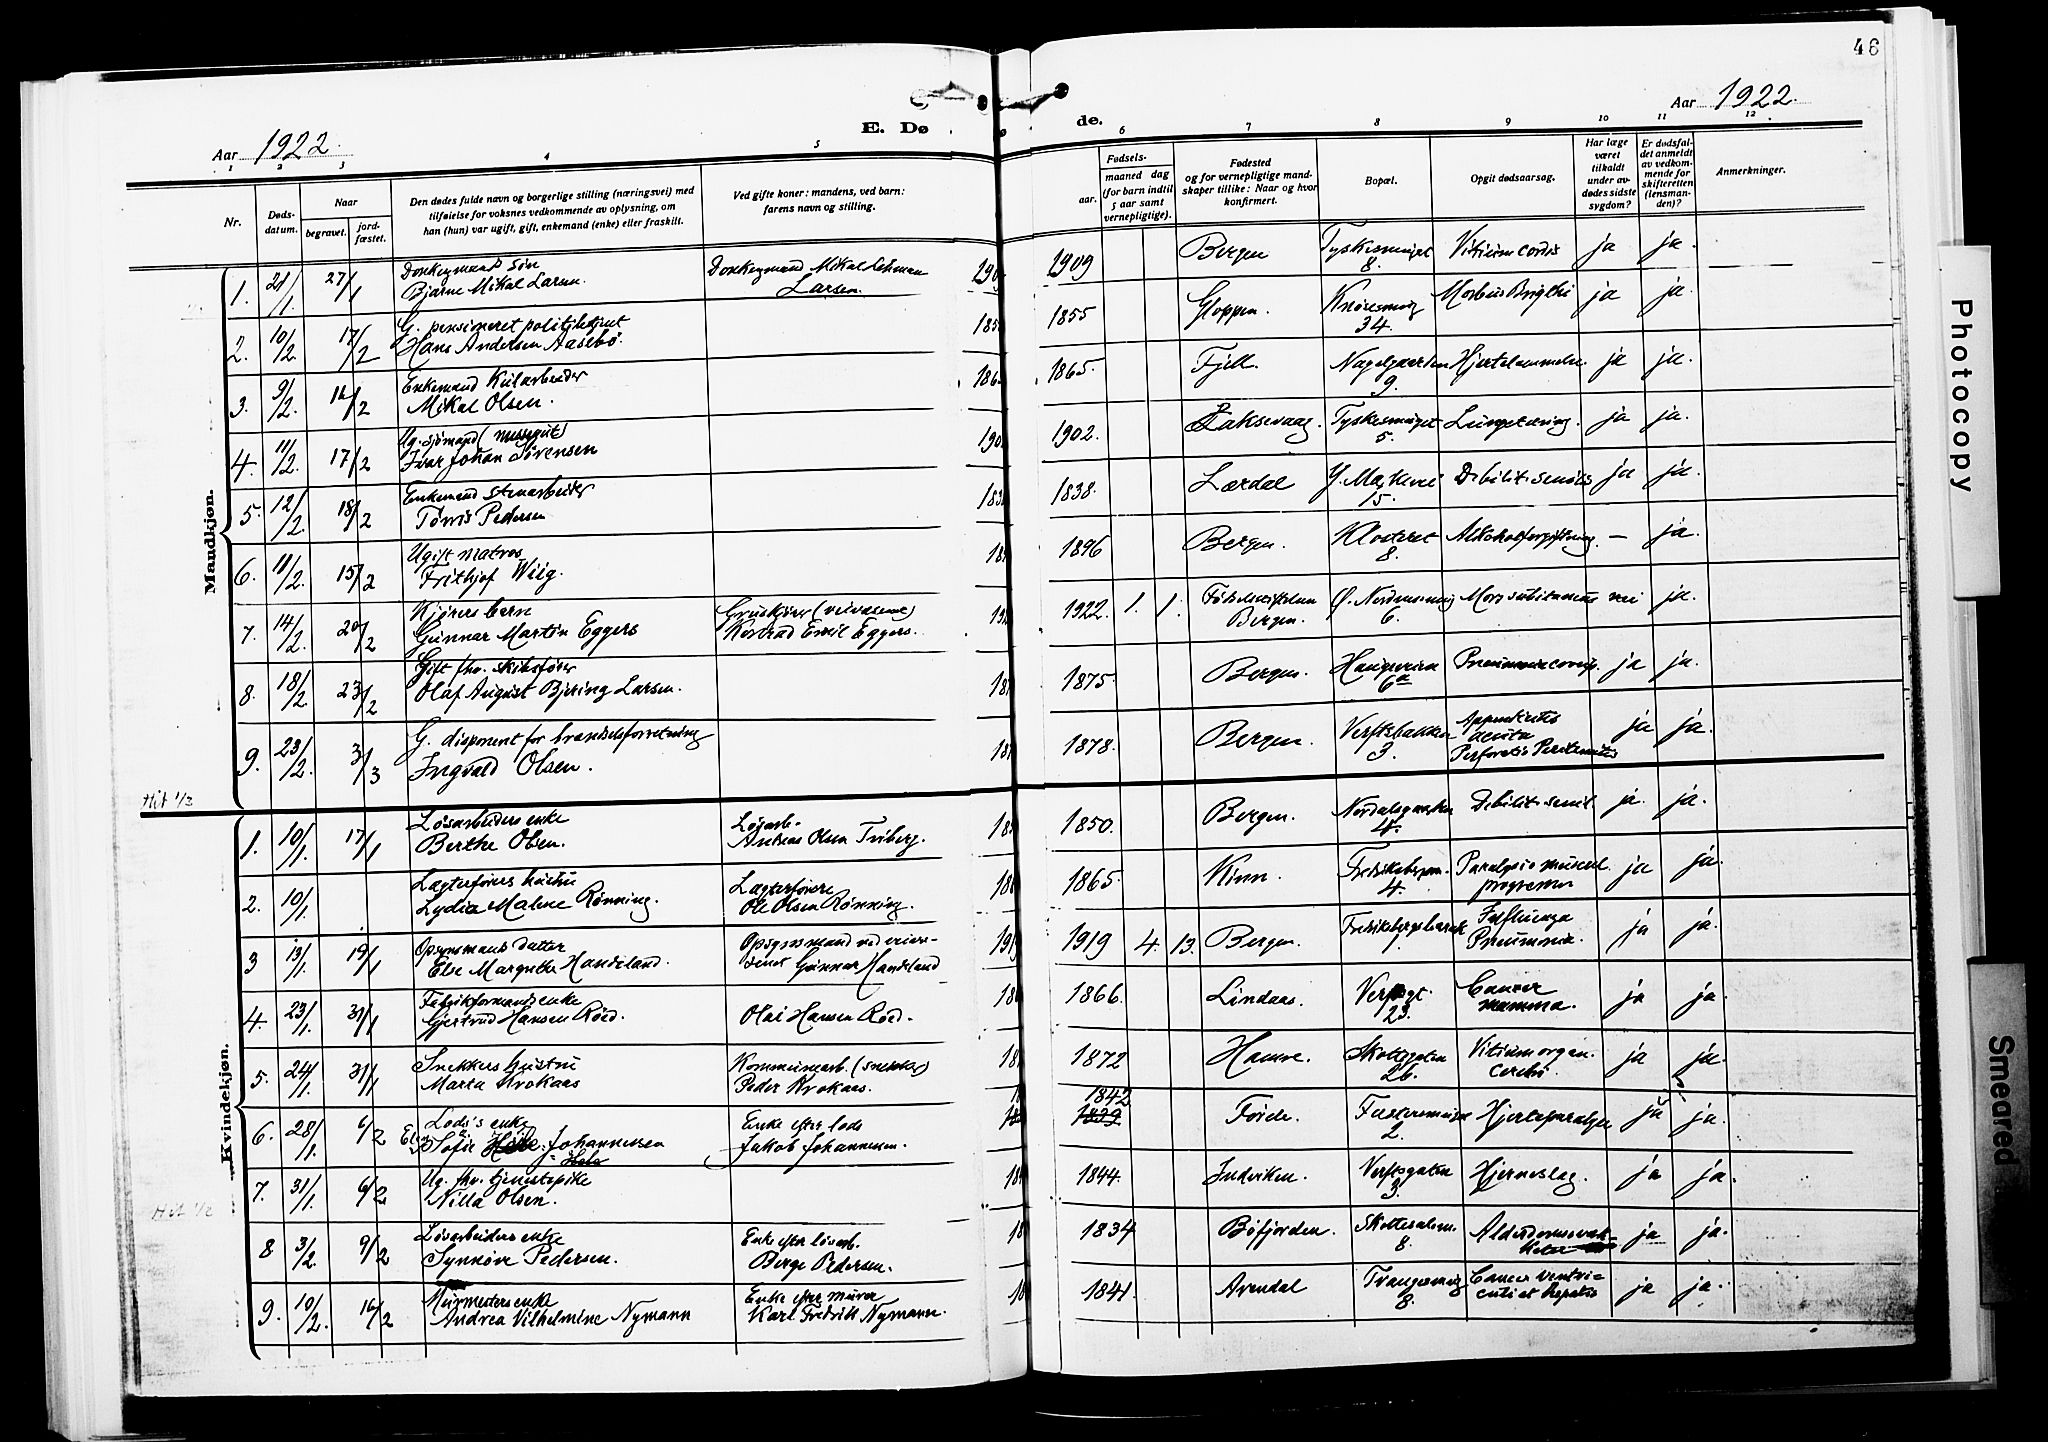 46
Aar 1922.
E. Dø
de.
Aar 1922.
1 2 3 4 5 6 7 8 9 10 11 12
Nr.
Døds-
datum.
Naar
begravet.
jord-
fæstet.
Den dødes fulde navn og borgerlige stilling (næringsvei) med
tilføielse for voksnes vedkommende av oplysning, om
han (hun) var ugift, gift, enkemand (enke) eller fraskilt.
Ved gifte koner: mandens, ved barn:
farens navn og stilling.
Fødsels-
aar.
maaned dag
(for barn indtil
5 aar samt
vernepligtige).
Fødested
og for vernepligtige mand-
skaper tillike: Naar og hvor
konfirmert.
Bopæl.
Opgit dødsaarsag.
Har læge
været
tilkaldt
under av-
dødes sidste
sygdom?
Er dødsfal-
det anmeldt
av vedkom-
mende for
skifteretten
(lensman-
den)?
Anmerkninger.
Mandkjøn.
1. 21/1. 27/1 Donkeymands søn
Bjarne Mikal Larsen.
Donkeymand Mikal Lehman
Larsen.
1909 Bergen Tyskesmuget
8. Vitium cordis ja ja.
2. 10/2. 17/2 G. pensioneret politibetjent
Hans Andersen Aasebö.
1855 Gloppen. Knøsesmug
34. Morbus Brigthi ja ja.
3. 9/2. 16/2 Enkemand Kularbeider
Mikal Olsen.
1865. Fjell. Nagelgaarden
9. Hjertelammelse ja ja.
4. 11/2. 17/2 Ug. sjömand (messegut)
Ivar Johan Sörensen
1902. Laksevaag. Tyskesmuget
5. Lungetæring. ja ja.
5. 12/2. 18/2 Enkemand stenarbeider
Tönnis Pedersen
1838. Lærdal Y. Markevei
15. Debilit. senilis ja ja.
6. 11/2. 15/2 Ugift matros
Frithjof Wiig.
1896 Bergen. Klosteret
8. Alkoholforgiftning. — ja.
7. 14/2. 20/2 Kjørers barn
Gunnar Martin Eggers
Gruskjører (veivæsenet)
Konrad Emil Eggers.
1922. 1. 1. Födselsstiftelsen
Bergen. Ø. Nordnesvei
6. Mors subitanens nei ja.
8. 18/2. 23/2 Gift fhv. skibsfører
Olaf August Bjering Larsen.
1875. Bergen. Haugeveien
6a Pneumonia croup. ja ja.
9. 23/2. 3/3 G. disponent for brændselsforretning
Ingvald Olsen.
1878. Bergen. Verftsbakken
3. Appendicitis
acuta
Perforatio Peritonitis ja ja.
Hit 1/3
Kvindekjøn.
1. 10/1. 17/1 Løsarbeiders enke
Berthe Olsen.
Løsarb.
Andreas Olsen Friberg.
1850. Bergen. Nordalsgaarden
4. Debilit. senil ja. ja.
2. 10/1. Lægterförers hustru
Lydia Malene Rönning.
Lægterförer
Ole Olsen Rönning.
1865. Kinn. Fredriksbergsm.
4. Paralysis muscul
progressiva ja ja.
3 13/1. 19/1 Opsynsmands datter
Else Margrethe Handeland.
Opsynsmand ved veivæ-
senet Gunnar Handeland
1919 4. 13. Bergen. Fredriksbergsbarak
1. Influenza
Pneumonia. ja ja.
4. 23/1. 31/1 Fabrikformands enke
Gjertrud Hansen Röed.
Olai Hansen Röed.
1866. Lindaas. Verftsgt.
23. Cancer
mamma. ja ja.
5. 24/1. 31/1 Snekkers hustru
Marta Krokaas
Kommunearb. (snekker)
Peder Krokaas.
1872 Hamre. Skottegaten
26. Vitium organ.
cerebri. ja ja.
6. 28/1. 6/2 Lods's enke
Sofie Johannessen
Enke efter lods
Jakob Johannessen.
1842
1839
Förde. Fæstersmuget
2. Hjerteparalyse ja ja.
7. 31/1. 6/2 Ug. fhv. tjenestepike
Nilla Olsen.
1844. Indviken. Verftsgaten
3. Hjerneslag. ja ja.
Hit 1/2
8 3/2. 9/2 Løsarbeiders enke
Synnöve Pedersen.
Enke efter løsarb.
Berge Pedersen.
1834 Böfjorden. Skottesalm.
8. Alderdomssvak-
het ja ja.
9. 10/2. 16/2 Murmesters enke
Andrea Vilhelmine Nymann
Enke efter murer
Karl Fredrik Nymann.
1841. Arendal Trangesmug
8. Cancer ventri-
culi et hepatis ja ja.
Photocopy
Smeared